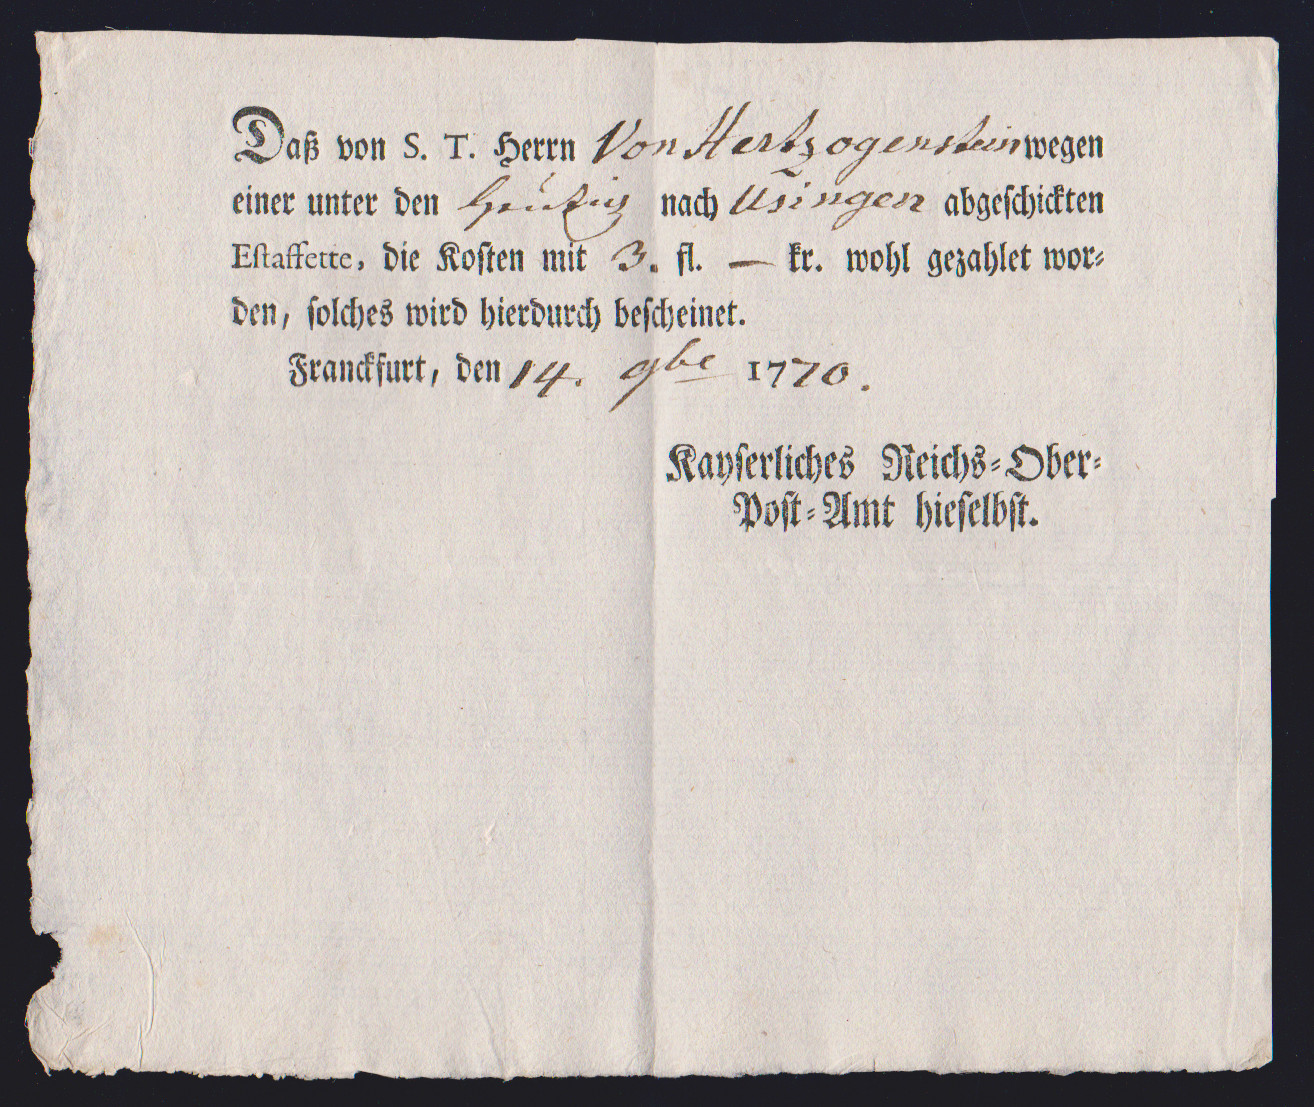 Daß von S. T. Herrn Von Hertzogenstein wegen
einer unter den heutig nach Usingen abgeschickten
Estaffette, die Kosten mit 3. fl. — kr. wohl gezahlet wor⸗
den, solches wird hierdurch bescheinet.
Franckfurt, den 14. 9be 1770.
Kayserliches Reichs⸗Ober⸗
Post⸗Amt hieselbst.